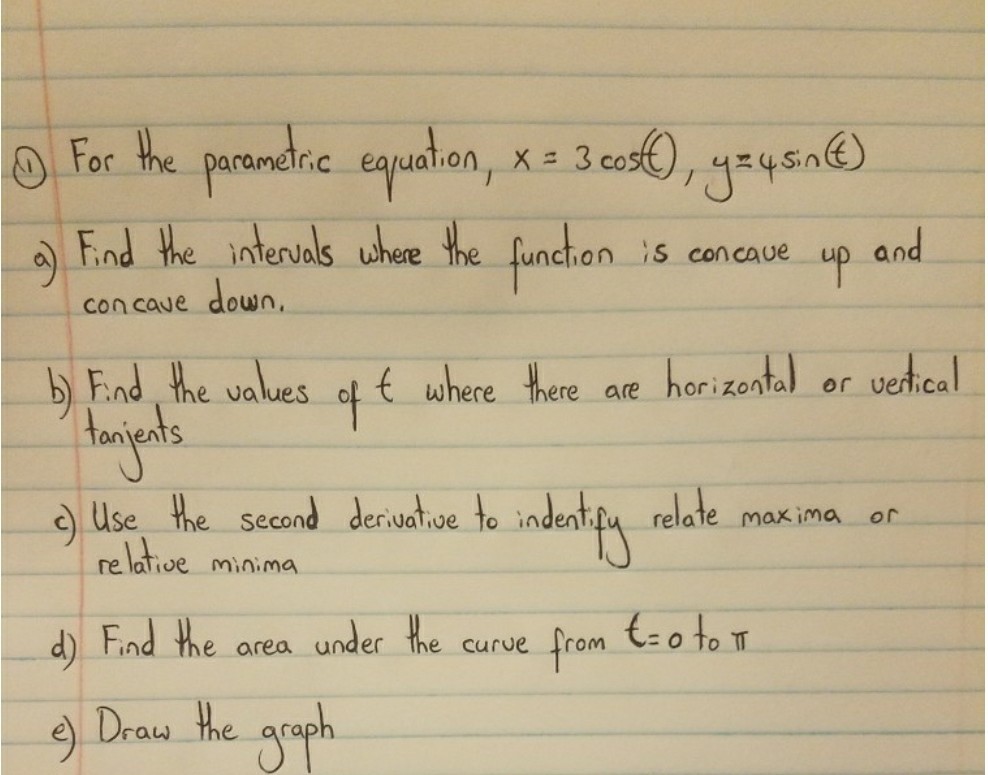 ① For the parametric equation, x = 3 cos(t), y = 4 sin(t)
a) Find the intervals where the function is concave up and
concave down.
b) Find the values of t where there are horizontal or vertical
tanjents
c) Use the second derivative to indentify relate maxima or
relative minima
d) Find the area under the curve from t=0 to π
e) Draw the graph